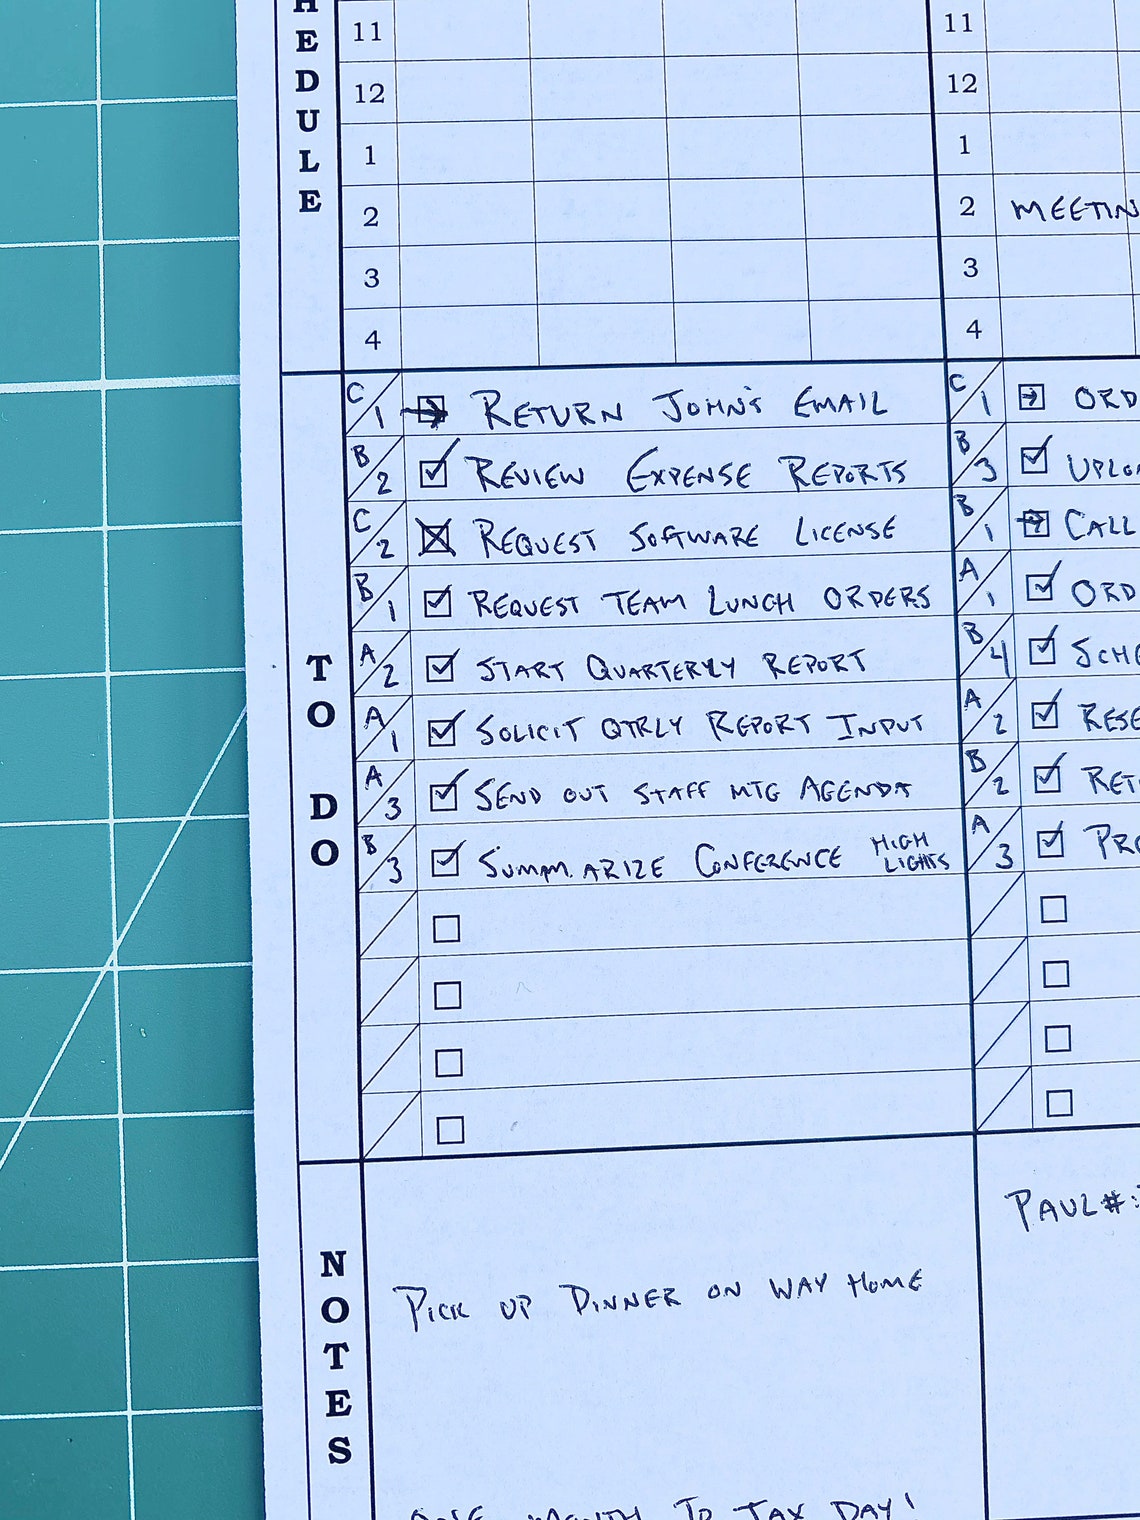 HEDULE
11
12
1
2
3
4
TO DO
C/1 RETURN JOHN'S EMAIL
B/2 REVIEW EXPENSE REPORTS
C/2 REQUEST SOFTWARE LICENSE
B/1 REQUEST TEAM LUNCH ORDERS
A/2 START QUARTERLY REPORT
A/1 SOLICIT QTRLY REPORT INPUT
A/3 SEND OUT STAFF MTG AGENDA
B/3 SUMMARIZE CONFERENCE HIGH
LIGHTS
NOTES
PICK UP DINNER ON WAY HOME
MONTH TO TAX DAY!
11
12
1
2 MEETIN
3
4
C/1 ORD
B/3 UPLO
B/1 CALL
A/1 ORD
B/4 SCHE
A/2 RESE
B/2 RET
A/3 PR
PAUL#: